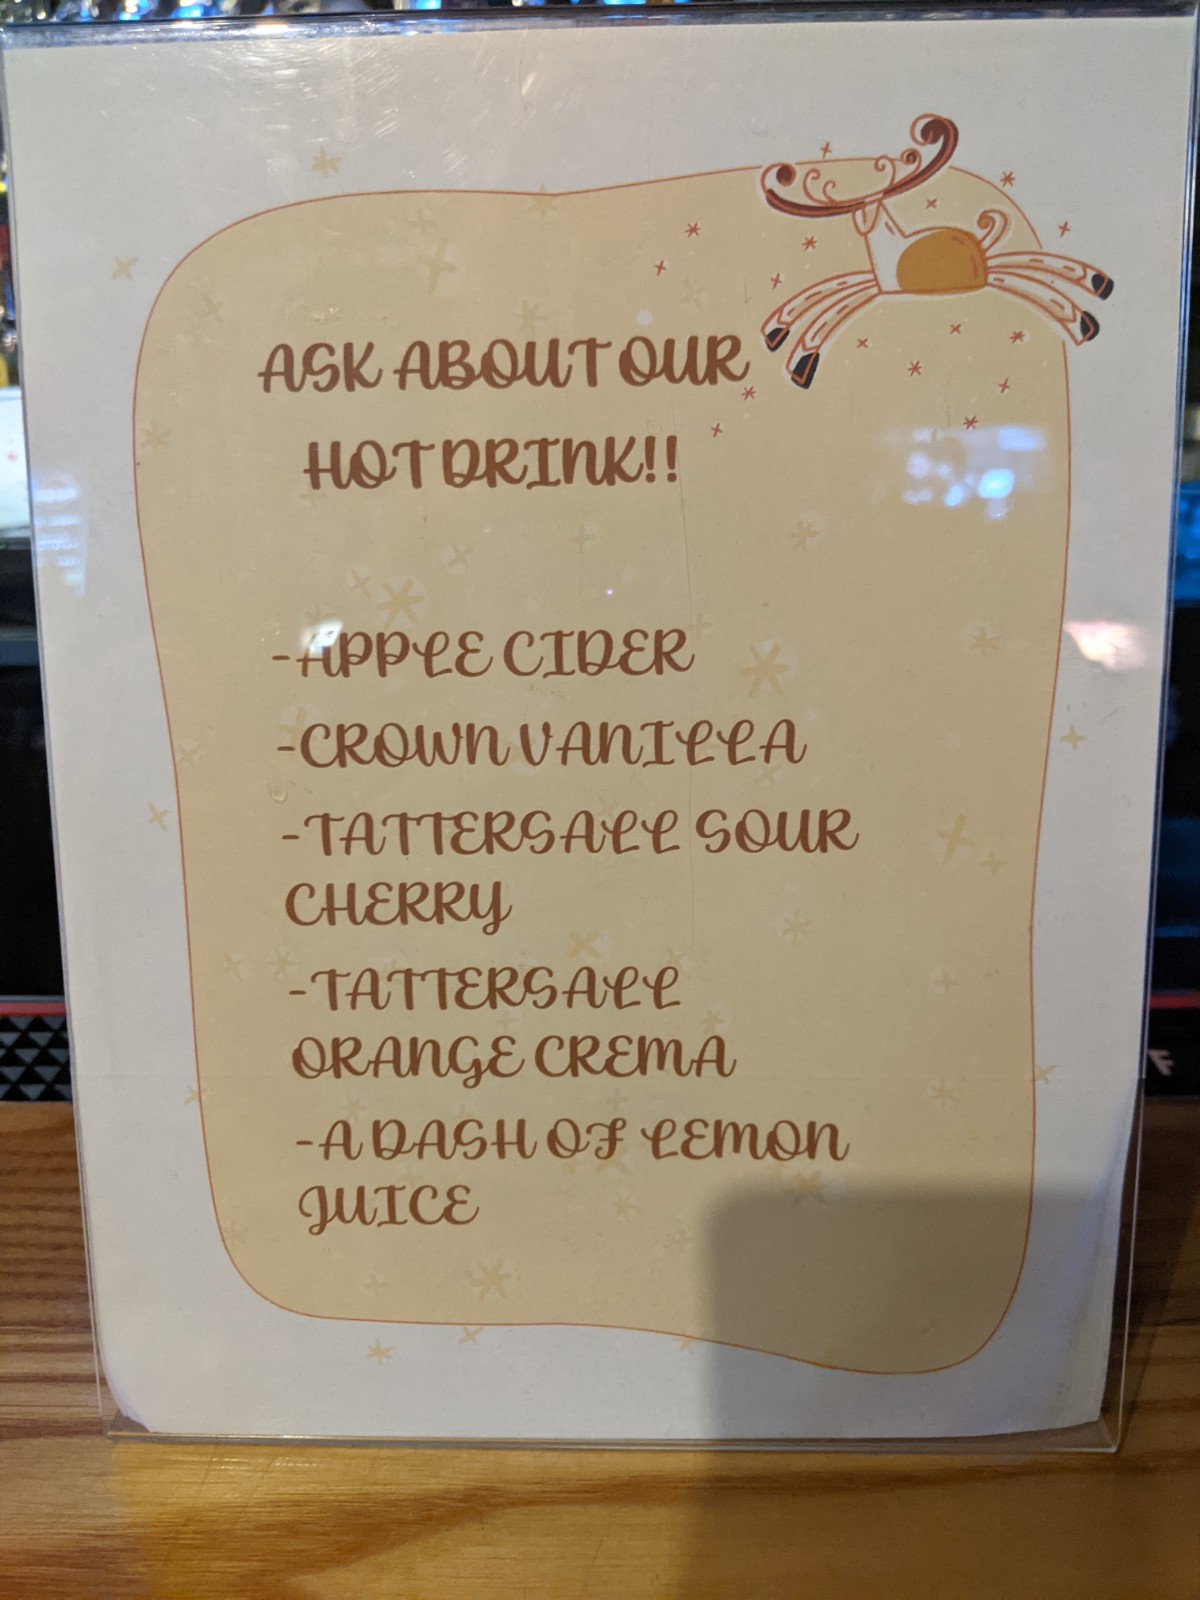 ASK ABOUT OUR
HOT DRINK!!
-APPLE CIDER
-CROWN VANILLA
-TATTERSALL SOUR
CHERRY
-TATTERSALL
ORANGE CREMA
-A DASH OF LEMON
JUICE